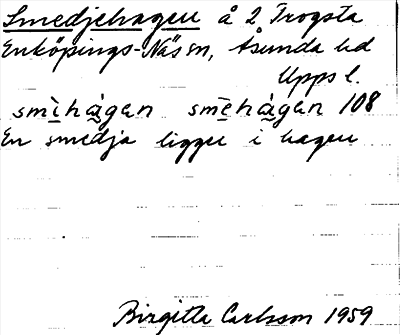 Smedjehagen å 2 Trogsta
Enköpings-Näs sn, Åsunda hd
Upps l.
smìhàgen smèhàgen 108
En smedja ligger i hagen
Birgitta Carlsson 1959